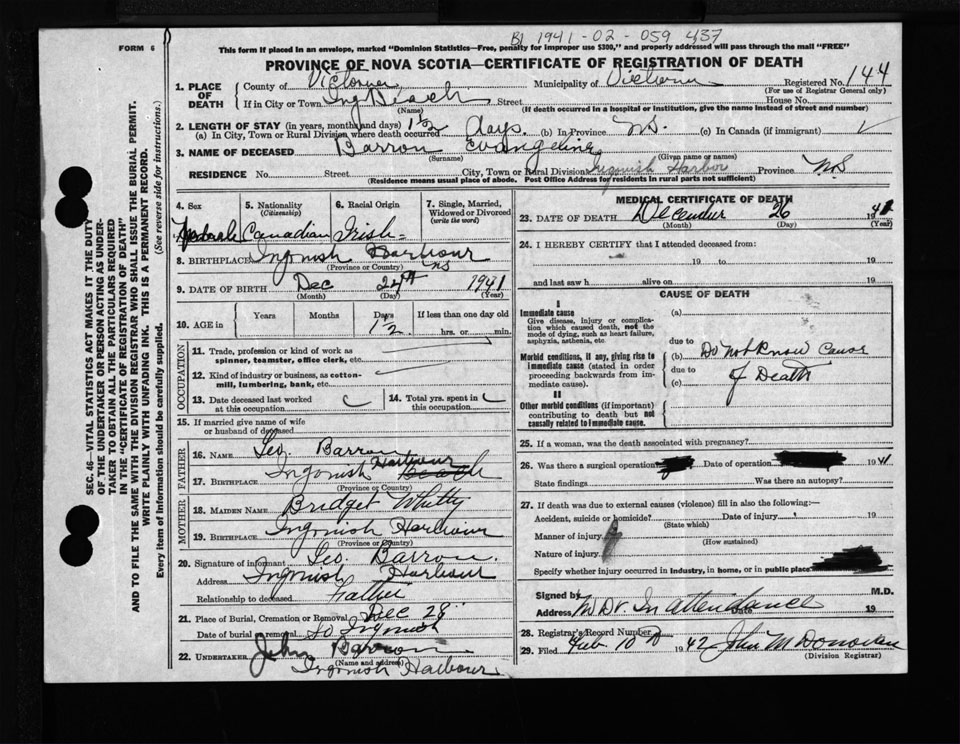 BJ 1941-02-059 437
FORM 6
This form if placed in an envelope, marked "Dominion Statistics—Free, penalty for improper use $300," and properly addressed will pass through the mail "FREE"
PROVINCE OF NOVA SCOTIA—CERTIFICATE OF REGISTRATION OF DEATH
1. PLACE OF DEATH County of Victoria Municipality of Victoria Registered No. 144
(For use of Registrar General only)
If in City or Town Ing Beach Street House No.
(Name) (If death occurred in a hospital or institution, give the name instead of street and number)
2. LENGTH OF STAY (in years, months and days) 1½ days.
(a) In City, Town or Rural Division where death occurred (b) In Province NS. (c) In Canada (if immigrant)
3. NAME OF DECEASED Barron Evangeline
(Surname) (Given name or names)
RESIDENCE No. Street City, Town or Rural Division Ingonish Harbor Province NS
(Residence means usual place of abode. Post Office Address for residents in rural parts not sufficient)
SEC. 46—VITAL STATISTICS ACT MAKES IT THE DUTY
OF THE UNDERTAKER OR PERSON ACTING AS UNDER-
TAKER TO OBTAIN ALL THE PARTICULARS REQUIRED
IN THE "CERTIFICATE OF REGISTRATION OF DEATH"
AND TO FILE THE SAME WITH THE DIVISION REGISTRAR WHO SHALL ISSUE THE BURIAL PERMIT.
WRITE PLAINLY WITH UNFADING INK. THIS IS A PERMANENT RECORD.
Every item of Information should be carefully supplied. (See reverse side for instructions.)
4. Sex 5. Nationality (Citizenship) 6. Racial Origin 7. Single, Married, Widowed or Divorced (write the word)
Female Canadian Irish
8. BIRTHPLACE Ingonish Harbour NS
(Province or Country)
9. DATE OF BIRTH Dec 24th 1941
(Month) (Day) (Year)
10. AGE in Years Months Days If less than one day old
1½ hrs. or min.
OCCUPATION
11. Trade, profession or kind of work as spinner, teamster, office clerk, etc.
12. Kind of industry or business, as cotton-mill, lumbering, bank, etc.
13. Date deceased last worked at this occupation 14. Total yrs. spent in this occupation
15. If married give name of wife or husband of deceased
FATHER
16. NAME Geo. Barron
Harbour
17. BIRTHPLACE Ingonish Beach
(Province or Country)
MOTHER
18. MAIDEN NAME Bridget Whitty
19. BIRTHPLACE Ingonish Harbour
(Province or Country)
20. Signature of informant Geo. Barron.
Address Ingonish Harbour
Relationship to deceased Father
21. Place of Burial, Cremation or Removal Dec 28
Date of burial or removal So Ingonish
22. UNDERTAKER John Barron
(Name and address)
Ingonish Harbour
MEDICAL CERTIFICATE OF DEATH
23. DATE OF DEATH December 26 1941
(Month) (Day) (Year)
24. I HEREBY CERTIFY that I attended deceased from:
19 to 19
and last saw h alive on 19
CAUSE OF DEATH
I
Immediate cause (a)
Give disease, injury or complication which caused death, not the mode of dying, such as heart failure, asphyxia, asthenia, etc
due to
Morbid conditions, if any, giving rise to immediate cause (stated in order proceeding backwards from immediate cause). (b) Do Not Know Cause
due to
(c) of Death
II
Other morbid conditions (if important) contributing to death but not causally related to immediate cause.
25. If a woman, was the death associated with pregnancy?
26. Was there a surgical operation Date of operation 1941
State findings Was there an autopsy?
27. If death was due to external causes (violence) fill in also the following:—
Accident, suicide or homicide? Date of injury 19
(State which)
Manner of injury
(How sustained)
Nature of injury
Specify whether injury occurred in industry, in home, or in public place
Signed by M.D.
Address No Dr In attendance 19
28. Registrar's Record Number
29. Filed Feb. 10 1942 John M Donovan
(Division Registrar)